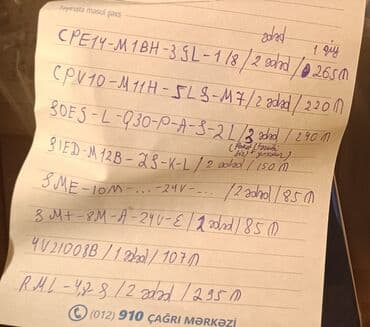 Təyinatla məsul şəxs
ədəd 1 qiy
CPE14-M1BH-3GL-1/8/2 ədəd/265₼
CPV10-M11H-5LS-M7/2 ədəd/220₼
SOEG-L-Q30-P-A-S-2L/3 ədəd/240₼
SIED-M12B-ZS-K-L/2 ədəd/150₼
SME-10M-...-24V-.../2 ədəd/85₼
SMT-8M-A-24V-E/2 ədəd/85₼
4V21008B/1 ədəd/107₼
RML-4,2S/2 ədəd/295₼
(012) 910 ÇAĞRI MƏRKƏZİ